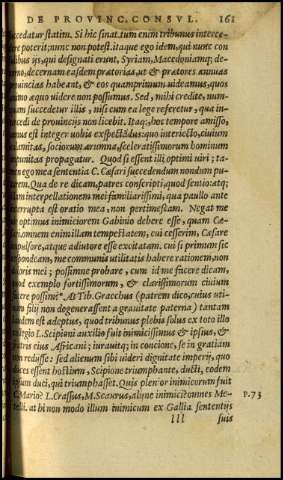 DE PROVINC. CONSVL. 161
succedatur statim. Si hic sinat. tum enim tribunus interce-
dere poterit: nunc non potest. itaque ego idem, qui nunc con
sulibus ijs, qui designati erunt, Syriam, Macedoniamq; de-
cerno, decernam easdem prætorias, ut & prætores annuas
prouincias habeant, & eos quamprimum uideamus, quos
animo æquo uidere non possumus. Sed, mihi credite, nun-
quam succedetur illis, nisi cum ea lege referetur, qua in-
tercedi de prouincijs non licebit. Itaq; hoc tempore amisso,
annus est integer uobis exspectãdus: quo interiecto, ciuium
calamitas, sociorum ærumna, sceleratissimorum hominum
impunitas propagatur. Quod si essent illi optimi uiri; ta-
men ego mea sententia C. Cæsari succedendum nondum pu-
tarem. Qua de re dicam, patres conscripti, quod sentio: atq;
illam interpellationem mei familiarissimi, qua paullo ante
interrupta est oratio mea, non pertimescam. Negat me
uir optimus inimiciorem Gabinio debere esse, quam Cæ-
sari. omnem enim illam tempestatem, cui cesserim, Cæsare
impulsore, atque adiutore esse excitatam. cui si primum sic
respondeam, me communis utilitatis habere rationem, non
doloris mei; possimne probare, cum id me facere dicam,
quod exemplo fortissimorum, & clarissimorum ciuium
facere possim? An Tib. Gracchus (patrem dico, cuius uti-
nam filij non degenerassent a grauitate paterna) tantam
laudem est adeptus, quod tribunus plebis solus ex toto illo
collegio L. Scipioni auxilio fuit inimicissimus & ipsius, &
fratris eius Africani; iurauitq; in concione, se in gratiam
non redisse: sed alienum sibi uideri dignitate imperij, quo
duces essent hostium, Scipione triumphante, ducti, eodem
ipsum duci, qui triumphasset. Quis plenior inimicorum fuit
C. Mario? L. Crassus, M. Scaurus, alijne inimici? omnes Me-
telli. at hi non modo illum inimicum ex Gallia sententijs
p. 73
lll suis